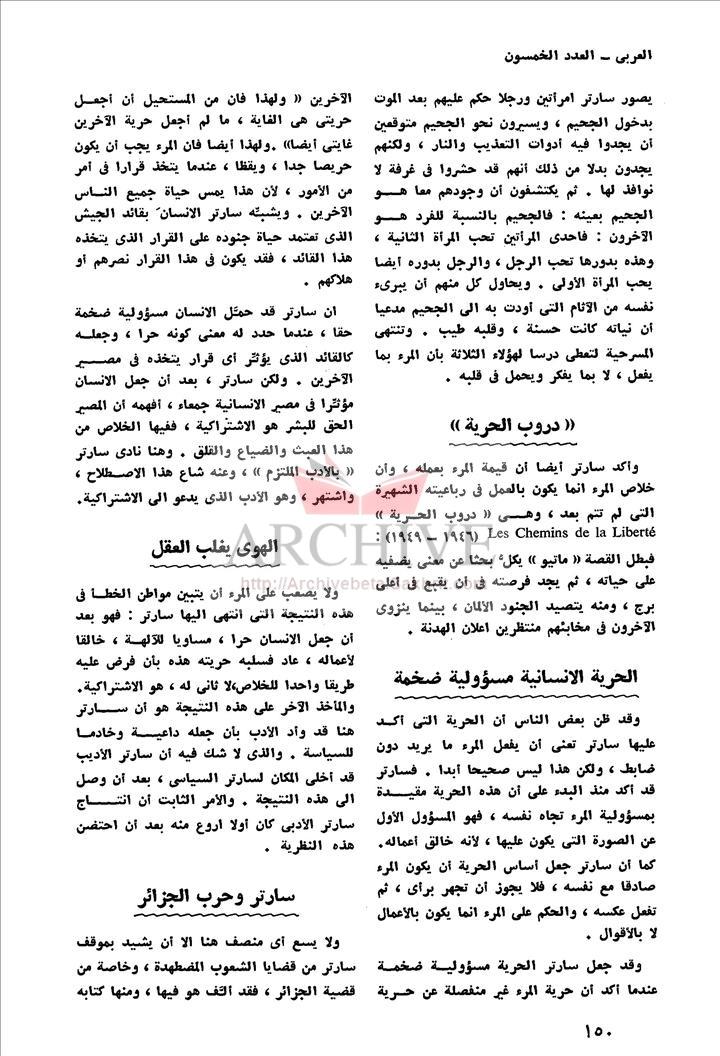 العربى ــ العدد الخمسون
يصور سارتر امرأتين ورجلا حكم عليهم بعد الموت
بدخول الجحيم ، ويسيرون نحو الجحيم متوقعين
أن يجدوا فيه أدوات التعذيب والنار ، ولكنهم
يجدون بدلا من ذلك أنهم قد حشروا فى غرفة لا
نوافذ لها . ثم يكتشفون أن وجودهم معا هــو
الجحيم بعينه : فالجحيم بالنسبة للفرد هــو
الآخرون : فاحدى المرأتين تحب المرأة الثانية ،
وهذه بدورها تحب الرجل ، والرجل بدوره أيضا
يحب المرأة الأولى . ويحاول كل منهم أن يبرىء
نفسه من الآثام التى أودت به الى الجحيم مدعيا
أن نياته كانت حسنة ، وقلبه طيب . وتنتهى
المسرحية لتعطى درسا لهؤلاء الثلاثة بأن المرء بما
يفعل ، لا بما يفكر ويحمل فى قلبه .
« دروب الحرية »
وأكد سارتر أيضا أن قيمة المرء بعمله ، وأن
خلاص المرء انما يكون بالعمل فى رباعيته الشهيرة
التى لم تتم بعد ، وهــى « دروب الحرية »
Les Chemins de la Liberté (١٩٤٦ – ١٩٤٩) :
فبطل القصة « ماتيو » يكلّ بحثا عن معنى يضفيه
على حياته ، ثم يجد فرصته فى أن يقبع فى أعلى
برج ، ومنه يتصيد الجنود الألمان ، بينما ينزوى
الآخرون فى مخابئهم منتظرين اعلان الهدنة .
الحرية الانسانية مسؤولية ضخمة
وقد ظن بعض الناس أن الحرية التى أكـد
عليها سارتر تعنى أن يفعل المرء ما يريد دون
ضابط ، ولكن هذا ليس صحيحا أبدا . فسارتر
قد أكد منذ البدء على أن هذه الحرية مقيـدة
بمسؤولية المرء تجاه نفسه ، فهو المسؤول الأول
عن الصورة التى يكون عليها ، لأنه خالق أعماله.
كما أن سارتر جعل أساس الحرية أن يكون المرء
صادقا مع نفسه ، فلا يجوز أن تجهر برأى ، ثم
تفعل عكسه ، والحكم على المرء انما يكون بالأعمال
لا بالأقوال .
وقد جعل سارتر الحرية مسؤوليـة ضخمـة
عندما أكد أن حرية المرء غير منفصلة عن حـرية
الآخرين « ولهذا فان من المستحيل أن أجعـل
حريتى هى الغاية ، ما لم أجعل حرية الآخرين
غايتى أيضا» .ولهذا أيضا فان المرء يجب أن يكون
حريصا جدا ، ويقظا ، عندما يتخذ قرارا فى أمر
من الأمور ، لأن هذا يمس حياة جميع النـاس
الآخرين . ويشبّه سارتر الانسان َ بقائد الجيش
الذى تعتمد حياة جنوده على القرار الذى يتخذه
هذا القائد ، فقد يكون فى هذا القرار نصرهم أو
هلاكهم .
ان سارتر قد حمّل الانسان مسؤولية ضخمة
حقا ، عندما حدد له معنى كونه حرا ، وجعلـه
كالقائد الذى يؤثّر أى قرار يتخذه فى مصـير
الآخرين . ولكن سارتر ، بعد أن جعل الانسان
مؤثّرا فى مصير الانسانية جمعاء ، أفهمه أن المصير
الحق للبشر هو الاشتراكية ، ففيها الخلاص من
هذا العبث والضياع والقلق . وهنا نادى سارتر
« بالأدب الملتزم » ، وعنه شاع هذا الاصـطلاح ،
واشتهر ، وهو الأدب الذى يدعو الى الاشتراكية.
الهوى يغلب العقل
ولا يصعب على المرء أن يتبين مواطن الخطـأ فى
هذه النتيجة التى انتهى اليها سارتر : فهو بعد
أن جعل الانسان حرا ، مساويا للآلهـة ، خالقا
لأعماله ، عاد فسلبه حريته هذه بأن فرض عليه
طريقا واحدا للخلاص،لا ثانى له ، هو الاشتراكية.
والمأخذ الآخر على هذه النتيجة هو أن ســارتر
هنا قد وأد الأدب بأن جعله داعيـة وخادمـا
للسياسة . والذى لا شك فيه أن سارتر الأديب
قد أخلى المكان لسارتر السياسى ، بعد أن وصل
الى هذه النتيجة . والأمر الثابت أن انتــاج
سارتر الأدبى كان أولا اروع منه بعد أن احتضن
هذه النظرية .
سارتر وحرب الجزائر
ولا يسع أى منصف هنا الا أن يشيد بموقف
سارتر من قضايا الشعوب المضطهدة ، وخاصة من
قضية الجزائر ، فقد ألّف هو فيها ، ومنها كتابه
١٥٠
ARCHIVE